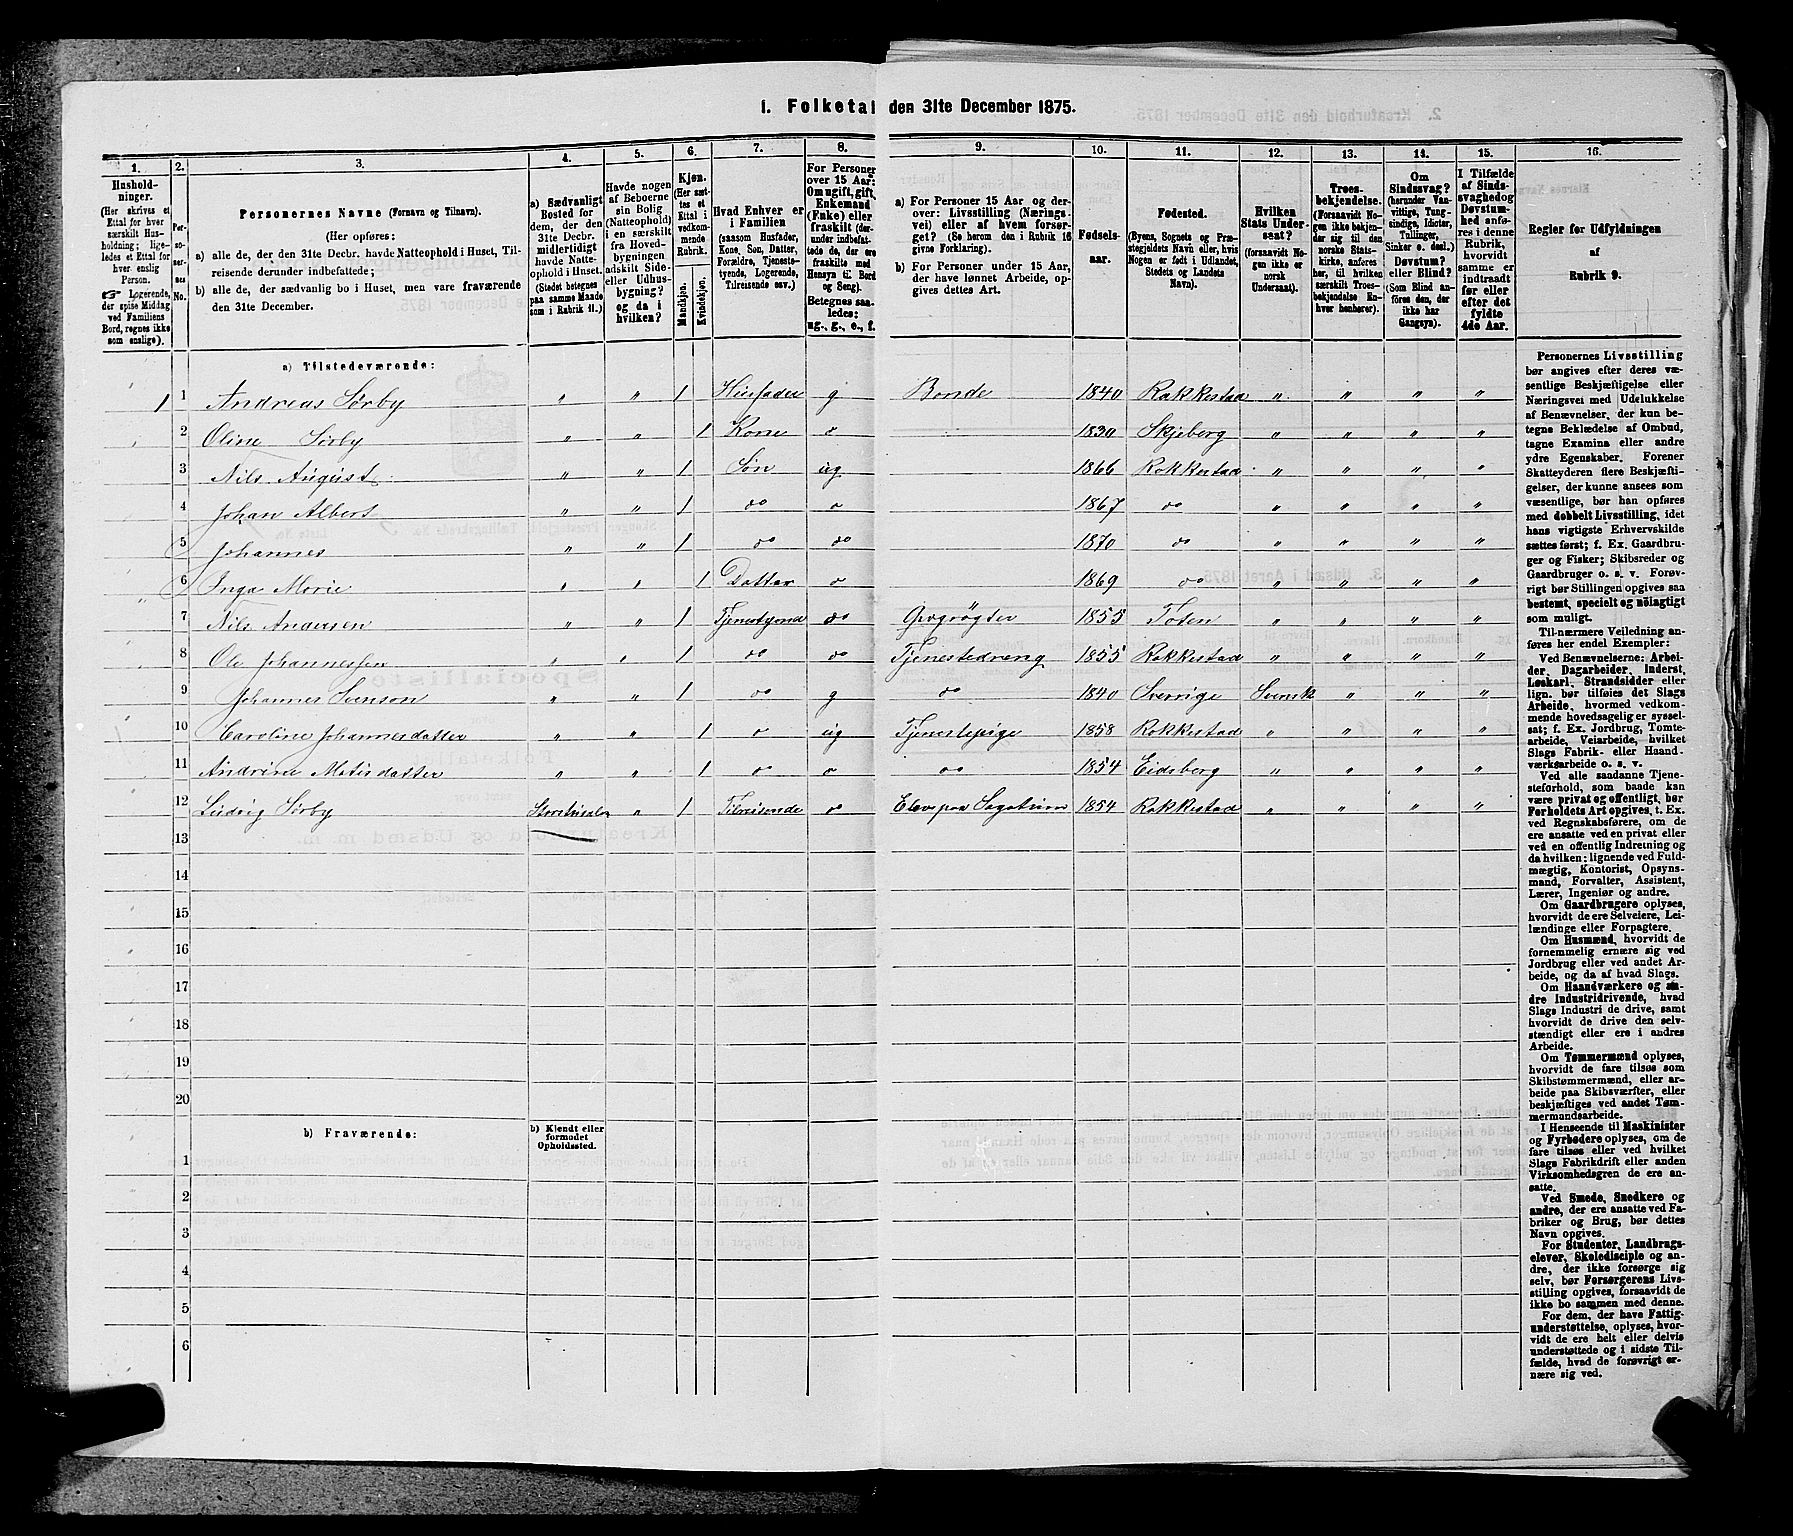 1. Folketal den 31te December 1875.
1. 2. 3. 4. 5. 6. 7. 8. 9. 10. 11. 12. 13. 14. 15. 16.
Hushold-
ninger.
(Her skrives et
Ettal for hver
særskilt Hus-
holdning; lige-
ledes et Ettal for
hver enslig
Person.
☞ Logerende,
der spise Middag
ved Familiens
Bord, regnes ikke
som enslige).
Per-
so-
ner-
nes
No.
Personernes Navne (Fornavn og Tilnavn).
(Her opføres:
a) alle de, der den 31te Decbr. havde Natteophold i Huset, Til-
reisende derunder indbefattede;
b) alle de, der sædvanlig bo i Huset, men vare fraværende
den 31te December.
a) Sædvanligt
Bosted for
dem, der den
31te Decbr.
midlertidigt
havde Natte-
ophold i Huset.
(Stedet betegnes
paa samme Maade
som i Rubrik 11.)
Havde nogen
af Beboerne
sin Bolig
(Natteophold)
i en særskilt
fra Hoved-
bygningen
adskilt Side-
eller Udhus-
bygning?
og da i
hvilken?
Kjøn.
(Her sæt-
tes et
Ettal i
vedkom-
mende
Rubrik.
Mandkjøn.
Kvindekjøn.
Hvad Enhver er
i Familien
(saasom Husfader,
Kone, Søn, Datter,
Forældre, Tjeneste-
tyende, Logerende,
Tilreisende osv.)
For Personer
over 15 Aar:
Om ugift, gift,
Enkemand
(Enke) eller
fraskilt (der-
under indbefat-
tede de, der ere
fraskilte med
Hensyn til Bord
og Seng).
Betegnes saa-
ledes:
ug., g., e., f.
a) For Personer 15 Aar og der-
over: Livsstilling (Nærings-
vei) eller af hvem forsør-
get? (Se herom den i Rubrik 16
givne Forklaring).
b) For Personer under 15 Aar,
der have lønnet Arbeide, op-
gives dettes Art.
Fødsels-
aar.
Fødested.
(Byens, Sognets og Præ-
stegjeldets Navn eller, hvis
Nogen er født i Udlandet,
Stedets og Landets
Navn).
Hvilken
Stats Under-
saat?
(forsaavidt No-
gen ikke er
norsk
Undersaat).
Troes-
bekjendelse.
(Forsaavidt No-
gen ikke bekjen-
der sig til den
norske Stats-
kirke, anføres
her, til hvilken
særskilt Troes-
bekjendelse En-
hver henhører).
Om
Sindssvag?
(herunder Van-
vittige, Tung-
sindige, Idioter,
Tullinger,
Sinker o. desl.)
Døvstum?
eller Blind?
(Som Blind an-
føres den, der
ikke har
Gangsyn).
I Tilfælde
af Sinds-
svaghed og
Døvstum-
hed anfø-
res i denne
Rubrik,
hvorvidt
samme er
indtraadt
før eller
efter det
fyldte
4de Aar.
Regler for Udfyldningen
af
Rubrik 9.
a) Tilstedeværende:
1 1 Andreas Sørby " " 1 Husfader g Bonde 1840 Rakkestad " " " "
2 Oline Sørby " " 1 Kone o 1830 Skjeberg " " " "
3 Nils August " " 1 Søn ug 1866 Rakkestad " " " "
4 Johan Albert " " 1 do o 1867 do " " " "
5 Johannes " " 1 do do 1870 do " " " "
6 Inga Marie " " 1 Datter o 1869 do " " " "
7 Nils Andersen " " 1 Tjenestyende do 1855 Toten " " " "
8 Ole Johannessen " " 1 do do Tjenestedreng 1855 Rakkestad " " " "
9 Johannes Svenson " " 1 do g do 1840 Sverrige Svensk " " "
10 Caroline Johannesdatter " " 1 o ug Tjenestepige 1858 Rakkestad " " " "
11 Andrine Matisdatter " " 1 o o do 1854 Eidsberg " " " "
12 Ludvig Sørby " 1 Tilreisende o Elev paa 1854 Rakkestad " " " "
13
14
15
16
17
18
19
20
b) Fraværende:
b) Kjendt eller
formodet
Opholdssted.
1
2
3
4
5
6
Personernes Livsstilling
bør angives efter deres væ-
sentlige Beskjæftigelse eller
Næringsvei med Udelukkelse
af Benævnelser, der kun be-
tegne Beklædelse af Ombud,
tagne Examina eller andre
ydre Egenskaber. Forener
Skatteyderen flere Beskjæfti-
gelser, der kunne ansees som
væsentlige, bør han opføres
med dobbelt Livsstilling, idet
hans vigtigste Erhvervskilde
sættes først; f. Ex. Gaardbru-
ger og Fisker; Skibsreder og
Gaardbruger o. s. v. Forøv-
rigt bør Stillingen opgives saa
bestemt, specielt og nöiagtigt
som muligt.
Til nærmere Veiledning an-
føres her endel Exempler:
Ved Benævnelserne: Arbei-
der, Dagarbeider, Inderst,
Løskarl, Strandsidder eller
lign. bør tilføies det Slags
Arbeide, hvormed vedkom-
mende hovedsagelig er syssel-
sat; f. Ex. Jordbrug, Tomte-
arbeide, Veiarbeide, hvilket
Slags Fabrik- eller Haand-
værksarbeide o. s. v.
Ved alle saadanne Tjene-
steforhold, som baade kan
være privat og offentligt, bør
Forholdets Art opgives, t. Ex.
ved Regnskabsførere, om de
ere ansatte ved en privat eller
ved en offentlig Indretning og
da hvilken: lignende ved Fuld-
mægtig, Kontorist, Opsyns-
mand, Forvalter, Assistent,
Lærer, Ingeniør og andre.
Om Gaardbrugere oplyses,
hvorvidt de ere Selveiere, Lei-
lændinge eller Forpagtere.
Om Husmænd, hvorvidt de
fornemmelig ernære sig ved
Jordbrug eller ved andet Ar-
beide, og da af hvad Slags.
Om Haandværkere og an-
dre Industridrivende, hvad
Slags Industri de drive, samt
hvorvidt de drive den selv-
stændigt eller ere i andres
Arbeide.
Om Tømmermænd oplyses,
hvorvidt de fare tilsøs som
Skibstømmermænd, eller ar-
beide paa Skibsværfter, eller
beskjæftiges ved andet Tøm-
mermandsarbeide.
I Henseende til Maskinister
og Fyrbødere oplyses, om de
fare tilsøs eller ved hvilket
Slags Fabrikdrift eller anden
Virksomhedsgren de ere an-
satte.
Ved Smede, Snedkere og
andre, der ere ansatte ved Fa-
briker og Brug, bør dettes
Navn opgives.
For Studenter, Landbrugs-
elever, Skoledisciple og an-
dre, der ikke forsørge sig
selv, bør Forsørgerens Livs-
stilling opgives, forsaavidt de
ikke bo sammen med denne.
For dem, der have Fattig-
understøttelse, oplyses, hvor-
vidt de ere helt eller delvis
understøttede og i sidste Til-
fælde, hvad de forøvrigt er-
nære sig ved.